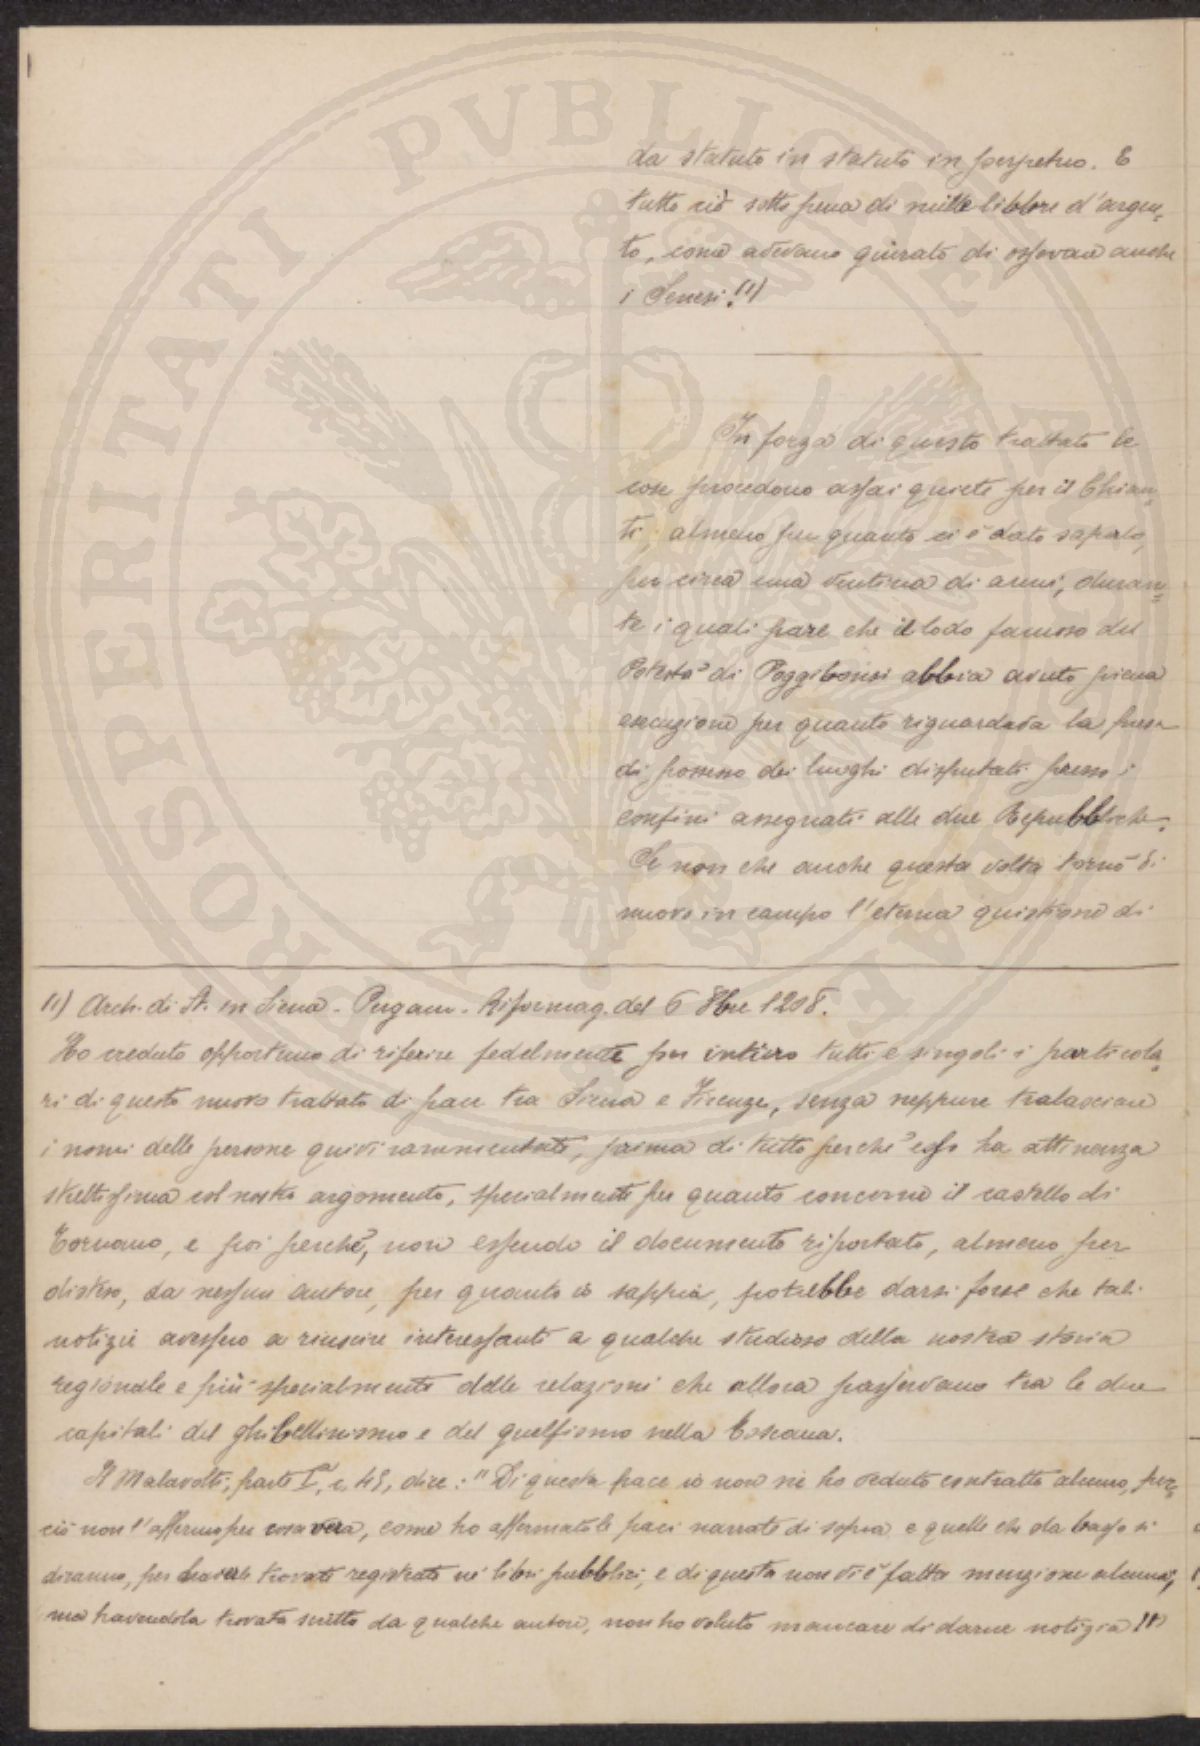 da statuto in statuto in perpetuo. E
tutto ciò sotto pena di mille libbre d'argen=
to, come avevano giurato di osservare anche
i Senesi. (1)
In forza di questo trattato le
cose procedono assai quiete per il Chian=
ti, almeno per quanto ci è dato saperlo,
per circa una ventina di anni, duran=
te i quali pare che il lodo famoso del
Potestà di Poggibonsi abbia avuto piena
esecuzione per quanto riguardava la presa
di possesso dei luoghi disputati presso i
confini assegnati alle due Repubbliche.
Se non che anche questa volta tornò di
nuovo in campo l'eterna quistione di
(1) Arch. di St. in Siena - Pergam. Riformag. del 6 8bre 1208.
Ho creduto opportuno di riferire fedelmente per intiero tutti e singoli i particola=
ri di questo nuovo trattato di pace tra Siena e Firenze, senza neppure tralasciare
i nomi delle persone quivi rammentate, prima di tutto perchè esso ha attinenza
strettissima col nostro argomento, specialmente per quanto concerne il castello di
Tornano, e poi perchè, non essendo il documento riportato, almeno per
disteso, da nessun autore, per quanto io sappia, potrebbe darsi forse che tali
notizie avessero a riuscire interessanti a qualche studioso della nostra storia
regionale e più specialmente delle relazioni che allora passavano tra le due
capitali del ghibellinismo e del guelfismo nella Toscana.
Il Malavolti, parte Iª, c. 45, dice: "Di questa pace io non ne ho veduto contratto alcuno, per=
ciò non l'affermo per cosa vera, come ho affermato le paci narrate di sopra e quelle che da basso si
diranno, per haverle trovate registrate ne' libri pubblici, e di questa non vi è fatta menzione alcuna;
ma havendola trovata scritta da qualche autore, non ho voluto mancare di darne notizia"
PROSPERITATI PVBLICAE